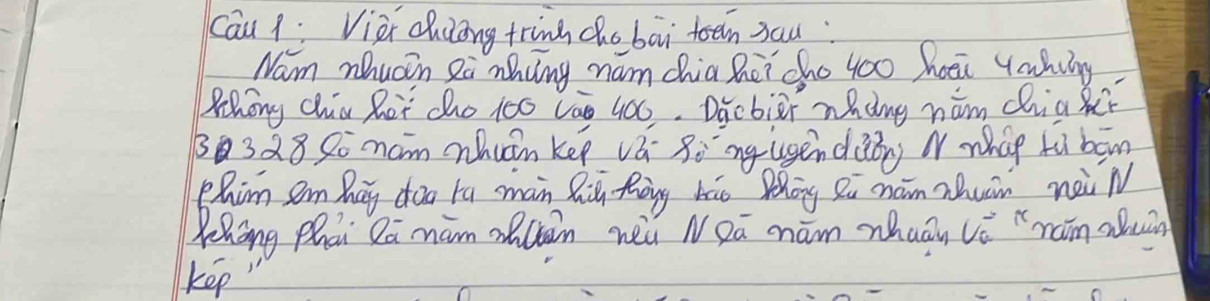 Câu 1: Viết chương trình cho bài toán sau:
Năm nhuận là những năm chia hết cho 400 hoặc 4 nhưng
không chia hết cho 100 và 400. Đặc biệt những năm chia hết
3328 là năm nhuận kép và số nguyên dương N nhập từ bàn
phím em hãy đưa ra màn hình thông báo không là năm nhuận nếu N
không phải là năm nhuận nếu N là năm nhuận và "năm nhuận
kép"